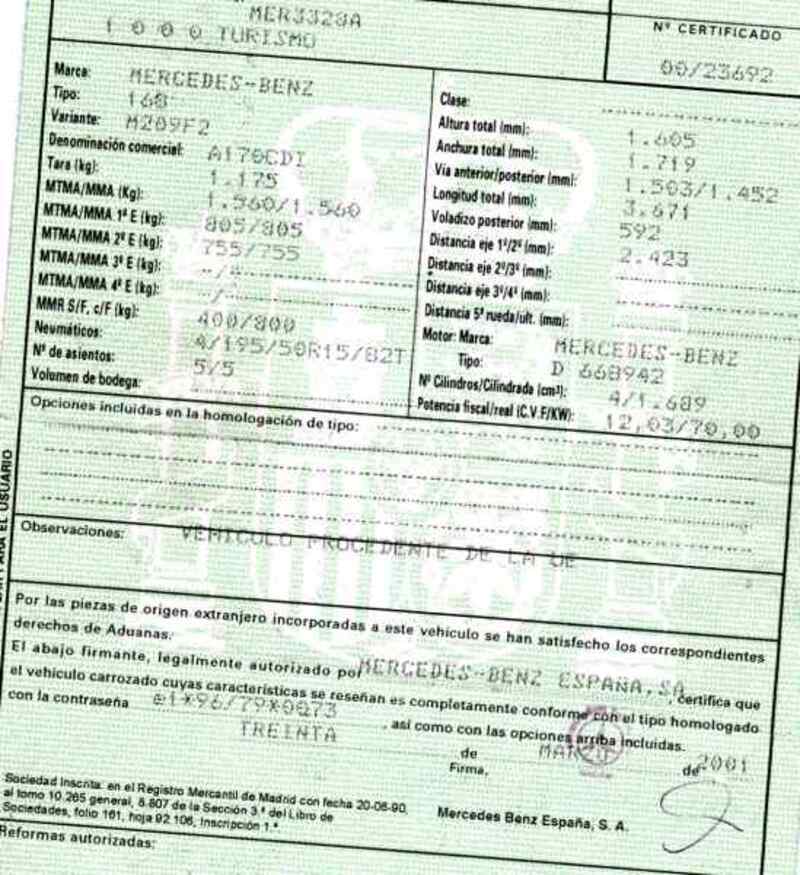 MER3328A
1 0 0 0 TURISMO
Nº CERTIFICADO
00/23692
Marca: MERCEDES-BENZ
Tipo: 168
Variante: M209F2
Denominación comercial: A170CDI
Tara (kg): 1.175
MTMA/MMA (Kg): 1.560/1.560
MTMA/MMA 1º E (kg): 805/805
MTMA/MMA 2º E (kg): 755/755
MTMA/MMA 3º E (kg): --/--
MTMA/MMA 4º E (kg): --/--
MMR S/F, c/F (kg): 400/800
Neumáticos: 4/195/50R15/82T
Nº de asientos: 5/5
Volumen de bodega:
Clase:
Altura total (mm): 1.605
Anchura total (mm): 1.719
Via anterior/posterior (mm): 1.503/1.452
Longitud total (mm): 3.671
Voladizo posterior (mm): 592
Distancia eje 1º/2º (mm): 2.423
Distancia eje 2º/3º (mm):
Distancia eje 3º/4º (mm):
Distancia 5ª rueda/ult. (mm):
Motor: Marca: MERCEDES-BENZ
Tipo: D 668942
Nº Cilindros/Cilindrada (cm³): 4/1.689
Potencia fiscal/real (C.V.F/KW): 12,03/70,00
Opciones incluidas en la homologación de tipo:
Observaciones: VEHICULO PROCEDENTE DE LA UE
PARA EL USUARIO
Por las piezas de origen extranjero incorporadas a este vehículo se han satisfecho los correspondientes
derechos de Aduanas.
El abajo firmante, legalmente autorizado por MERCEDES-BENZ ESPAÑA,SA, certifica que
el vehículo carrozado cuyas características se reseñan es completamente conforme con el tipo homologado
con la contraseña e1*96/79*0073, así como con las opciones arriba incluidas.
TREINTA de MARZO de 2001
Firma,
Sociedad Inscrita en el Registro Mercantil de Madrid con fecha 20-06-90,
al tomo 10.265 general, 8.807 de la Sección 3ª del Libro de
Sociedades, folio 161, hoja 92.106, Inscripción 1ª.
Mercedes Benz España, S. A.
Reformas autorizadas: